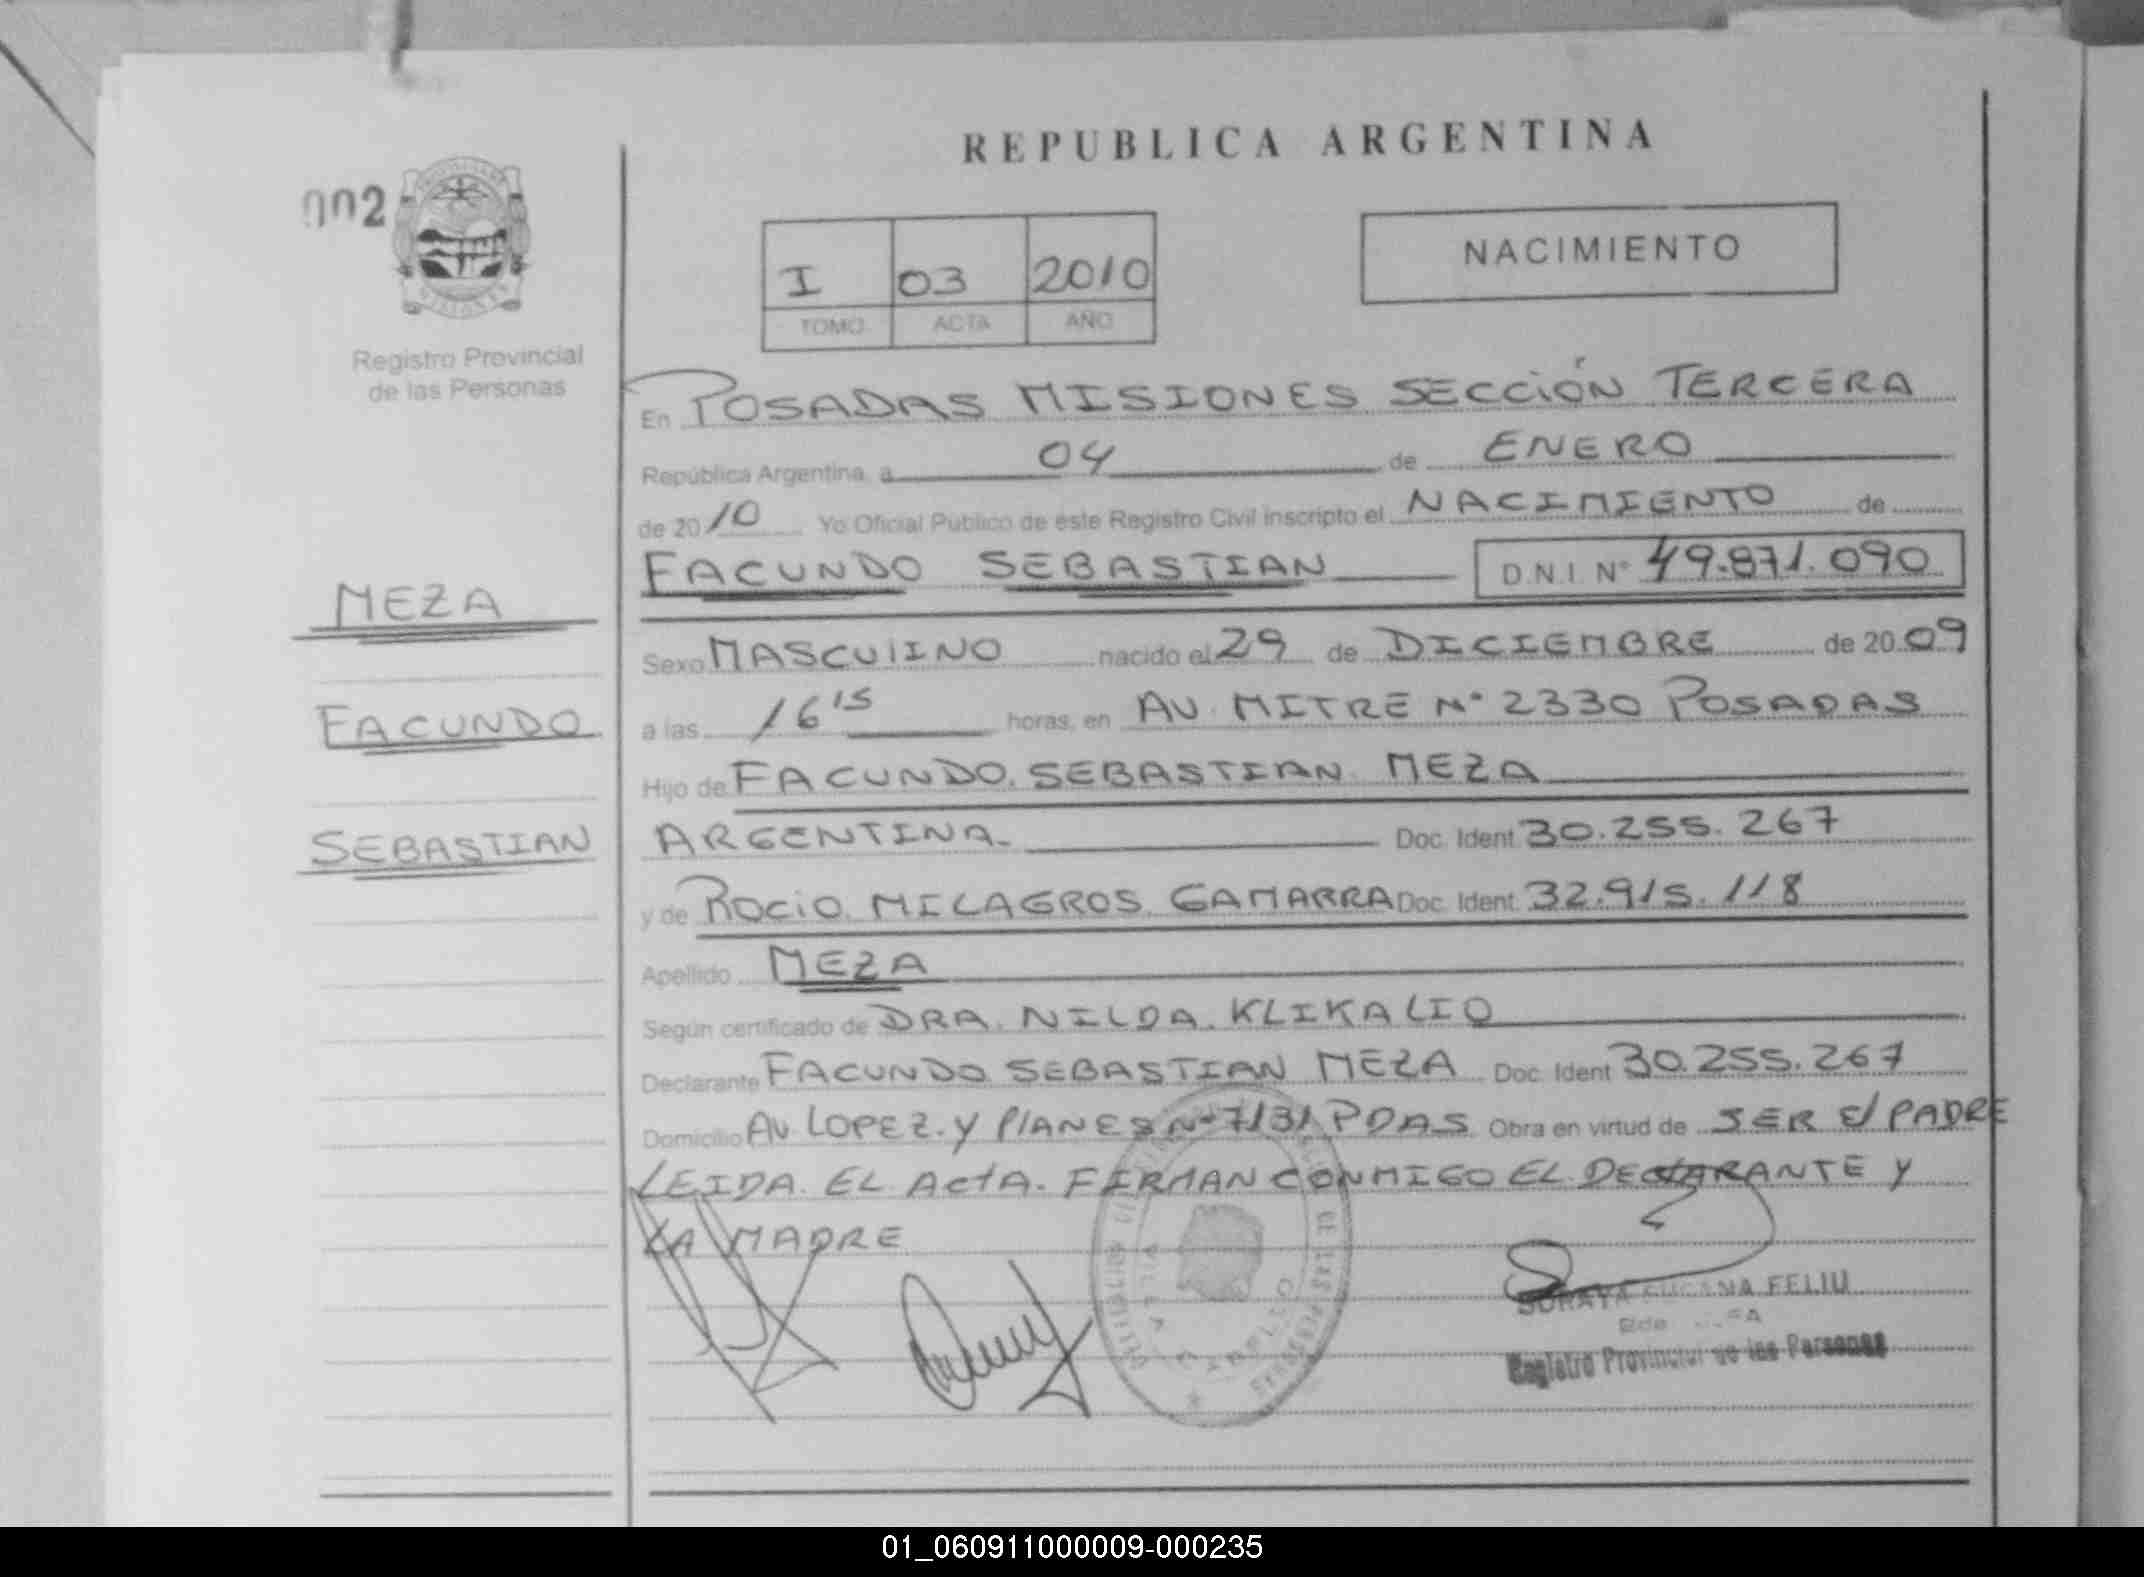 REPUBLICA ARGENTINA
002
NACIMIENTO
I 03 2010
TOMO ACTA AÑO
Registro Provincial
de las Personas
En POSADAS MISIONES SECCIÓN TERCERA
República Argentina, a 04 de ENERO
de 2010 Yo Oficial Público de este Registro Civil inscripto el NACIMIENTO de
FACUNDO SEBASTIAN D.N.I. Nº 49.871.090
MEZA
FACUNDO
SEBASTIAN
Sexo MASCULINO nacido el 29 de DICIEMBRE de 2009
a las 16 15 horas, en AV. MITRE Nº 2330 POSADAS
Hijo de FACUNDO SEBASTIAN MEZA
ARGENTINA Doc. Ident. 30.255.267
y de ROCIO MILAGROS GAMARRA Doc. Ident. 32.915.118
Apellido MEZA
Según certificado de DRA. NILDA KLIKALIO
Declarante FACUNDO SEBASTIAN MEZA Doc. Ident 30.255.267
Domicilio AV. LOPEZ Y PLANES Nº 7131 PDAS Obra en virtud de SER El PADRE
LEIDA EL ActA. FIRMAN CONMIGO EL DECLARANTE Y
LA MADRE
SORAYA FELIU
Registro Provincial de las Personas
01_060911000009-000235